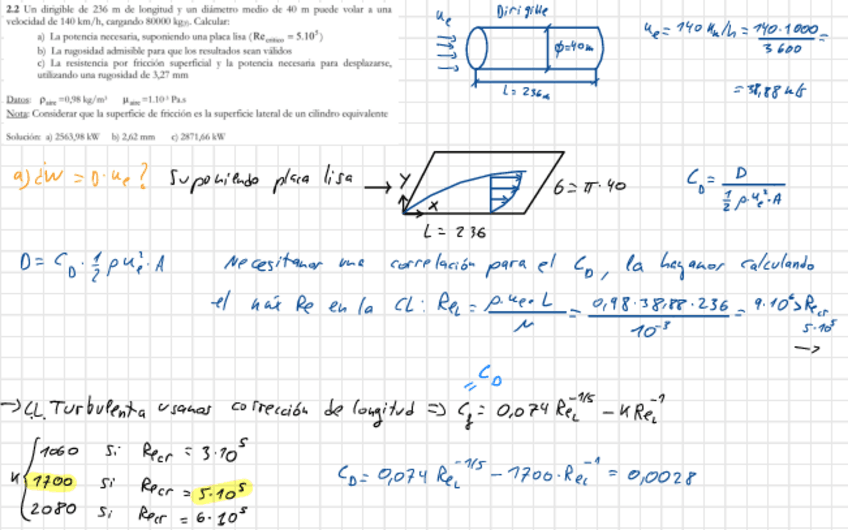 2.2 Un dirigible de 236 m de longitud y un diámetro medio de 40 m puede volar a una
velocidad de 140 km/h, cargando 80000 kg(f). Calcular:
a) La potencia necesaria, suponiendo una placa lisa (Re crítico = 5.10⁵)
b) La rugosidad admisible para que los resultados sean válidos
c) La resistencia por fricción superficial y la potencia necesaria para desplazarse,
utilizando una rugosidad de 3,27 mm
Datos: ρ aire =0,98 kg/m³ μ aire =1.10⁻³ Pa.s
Nota: Considerar que la superficie de fricción es la superficie lateral de un cilindro equivalente
Solución: a) 2563,98 kW b) 2,62 mm c) 2871,66 kW
Dirigible
u_e
ϕ=40m
L = 236m
u_e = 140 km/h = 140·1000 / 3600 =
= 38,88 m/s
a) ¿Ẇ = D·u_e? Suponiendo placa lisa →
Y
X
L = 236
6 = π·40
C_D = D / ½ ρ·u_e²·A
D = C_D · ½ ρ u_e² · A Necesitamos una correlación para el C_D, la hayamos calculando
el máx Re en la CL: Re_L = ρ·u_e·L / μ = 0,98·38,88·236 / 10⁻³ = 9·10⁶ > Re_cr
5·10⁵
→
= C_D
→ CL. Turbulenta usamos corrección de longitud ⇒ C_f = 0,074 Re_L^-1/5 - K Re_L^-1
K { 1060 si Re_cr = 3·10⁵
1700 si Re_cr = 5·10⁵
2080 si Re_cr = 6·10⁵
C_D = 0,074 Re_L^-1/5 - 1700·Re_L^-1 = 0,0028